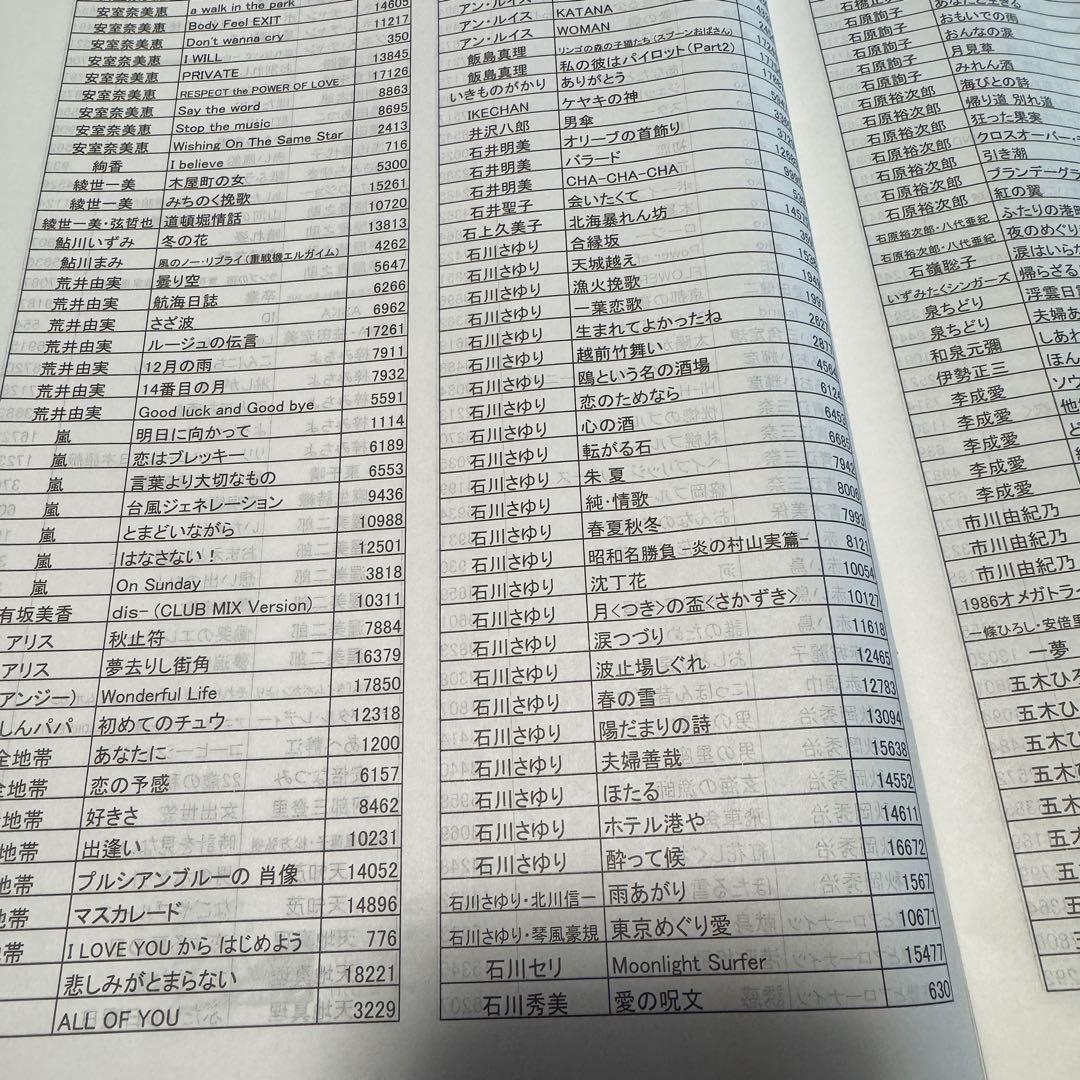 安室奈美恵 a walk in the park
安室奈美恵 Body Feel EXIT 14605
安室奈美恵 Don't wanna cry 11217
安室奈美恵 I WILL 350
安室奈美恵 PRIVATE 13845
安室奈美恵 RESPECT the POWER OF LOVE 17126
安室奈美恵 Say the word 8863
安室奈美恵 Stop the music 8695
安室奈美恵 Wishing On The Same Star 2413
絢香 I believe 716
綾世一美 木屋町の女 5300
綾世一美 みちのく挽歌 15261
綾世一美・弦哲也 道頓堀情話 10720
鮎川いずみ 冬の花 13813
鮎川まみ 風のノー・リプライ(重戦機エルガイム) 4262
荒井由実 曇り空 5647
荒井由実 航海日誌 6266
荒井由実 さざ波 6962
荒井由実 ルージュの伝言 17261
荒井由実 12月の雨 7911
荒井由実 14番目の月 7932
荒井由実 Good luck and Good bye 5591
嵐 明日に向かって 1114
嵐 恋はブレッキー 6189
嵐 言葉より大切なもの 6553
嵐 台風ジェネレーション 9436
嵐 とまどいながら 10988
嵐 はなさない! 12501
嵐 On Sunday 3818
有坂美香 dis- (CLUB MIX Version) 10311
アリス 秋止符 7884
アリス 夢去りし街角 16379
アンジー) Wonderful Life 17850
しんパパ 初めてのチュウ 12318
全地帯 あなたに 1200
全地帯 恋の予感 6157
地帯 好きさ 8462
地帯 出逢い 10231
地帯 プルシアンブルーの 肖像 14052
地帯 マスカレード 14896
地帯 I LOVE YOU から はじめよう 776
悲しみがとまらない 18221
ALL OF YOU 3229
アン・ルイス KATANA
アン・ルイス WOMAN
飯島真理 リンゴの森の子猫たち (スプーンおばさん)
飯島真理 私の彼はパイロット (Part2)
いきものがかり ありがとう
IKECHAN ケヤキの神
井沢八郎 男傘
石井明美 オリーブの首飾り
石井明美 バラード
石井明美 CHA-CHA-CHA
石井聖子 会いたくて
石上久美子 北海暴れん坊
石川さゆり 合縁坂
石川さゆり 天城越え
石川さゆり 漁火挽歌
石川さゆり 一葉恋歌
石川さゆり 生まれてよかったね 2627
石川さゆり 越前竹舞い
石川さゆり 鴎という名の酒場 4564
石川さゆり 恋のためなら 6124
石川さゆり 心の酒
石川さゆり 転がる石 6685
石川さゆり 朱夏 7942
石川さゆり 純・情歌 8006
石川さゆり 春夏秋冬 7993
石川さゆり 昭和名勝負 -炎の村山実篇- 8121
石川さゆり 沈丁花 10054
石川さゆり 月<つき>の盃<さかずき> 10127
石川さゆり 涙つづり 11618
石川さゆり 波止場しぐれ 12465
石川さゆり 春の雪 12783
石川さゆり 陽だまりの詩 13094
石川さゆり 夫婦善哉 15638
石川さゆり ほたる 14552
石川さゆり ホテル港や 14611
石川さゆり 酔って候 16672
石川さゆり・北川信一 雨あがり 1567
石川さゆり・琴風豪規 東京めぐり愛 10671
石川セリ Moonlight Surfer 15477
石川秀美 愛の呪文 630
石原詢子 おもいでの雨
石原詢子 おんなの涙
石原詢子 月見草
石原詢子 みれん酒
石原裕次郎 海びとの詩
石原裕次郎 帰り道 別れ道
石原裕次郎 狂った果実
石原裕次郎 クロスオーバー・
石原裕次郎 引き潮
石原裕次郎 ブランデーグラ
石原裕次郎 紅の翼
石原裕次郎・八代亜紀 ふたりの港町
石原裕次郎・八代亜紀 夜のめぐり
石嶺聡子 涙はいら
いずみたくシンガーズ 帰らざる
泉ちどり 浮雲日記
泉ちどり 夫婦あ
和泉元彌 しあわ
伊勢正三 ほん
李成愛 ソウ
李成愛 他
李成愛
李成愛
李成愛
市川由紀乃
市川由紀乃
市川由紀乃
1986オメガトラ
一條ひろし・安倍里
一夢
五木ひろ
五木ひ
五木ひ
五木ひ
五木
五木
五木
五
五